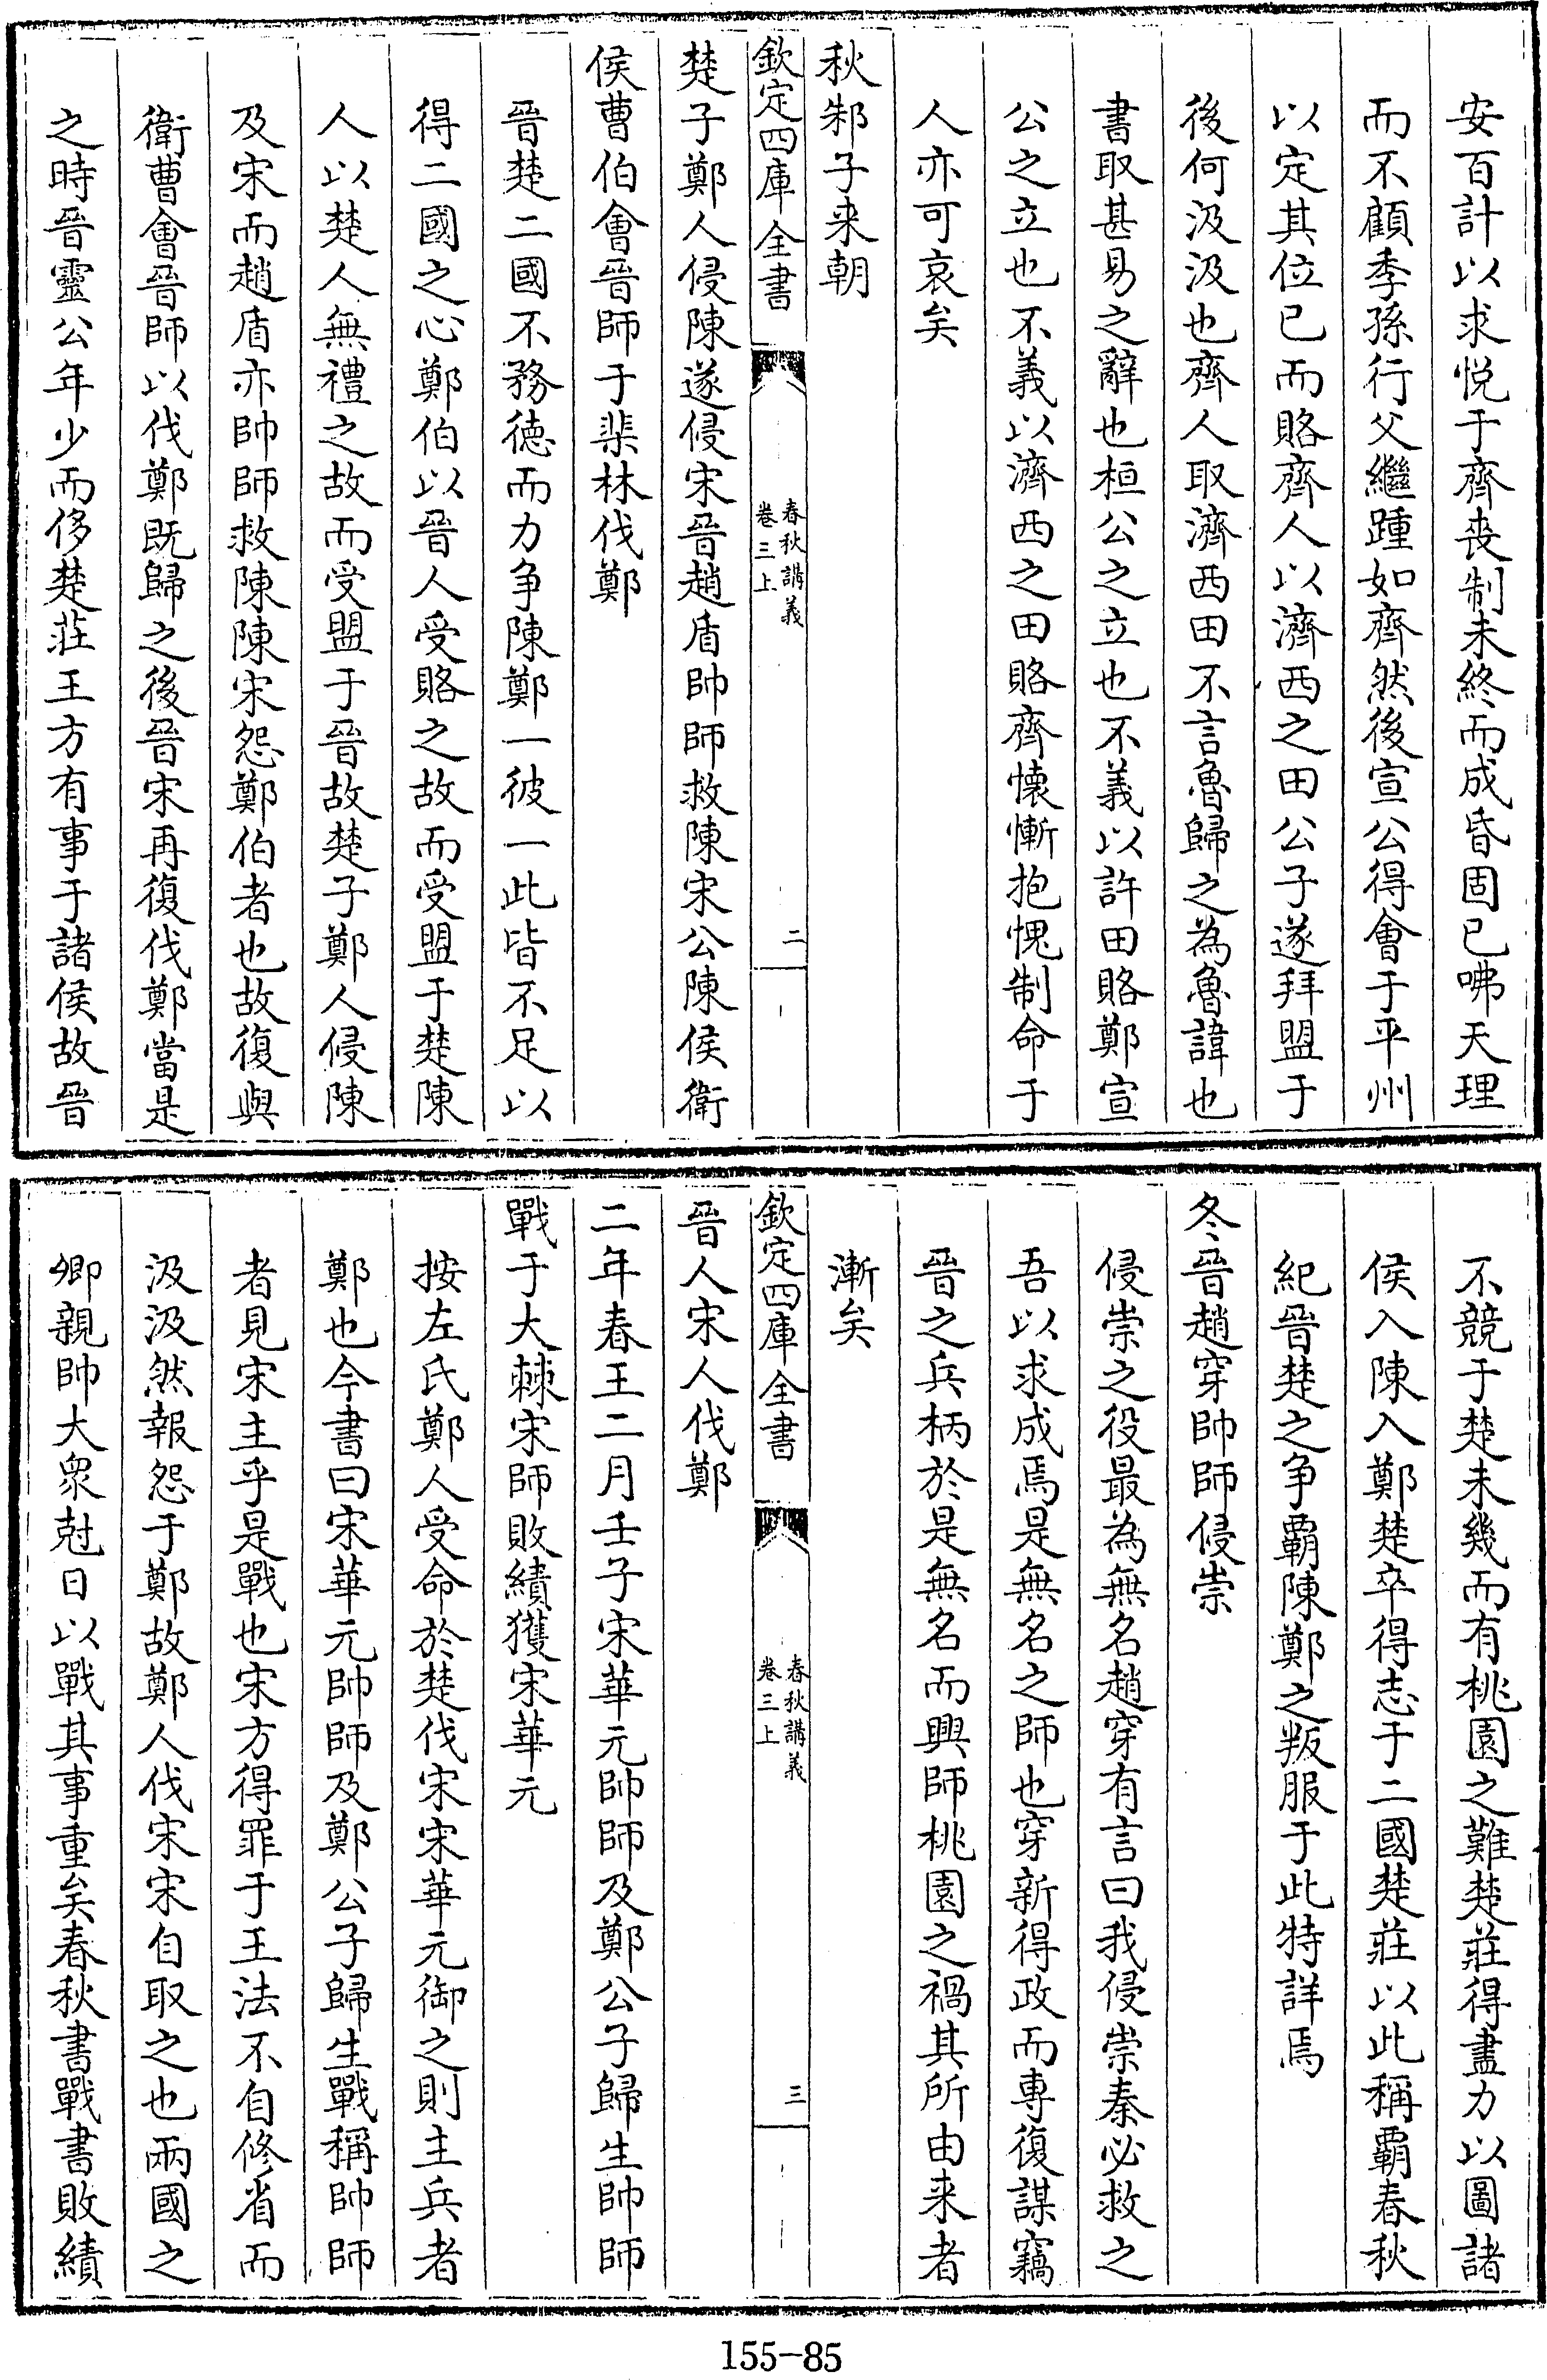 安百計以求悦于齊喪制未終而成昏固已咈天理
而不顧季孫行父繼踵如齊然後宣公得會于平州
以定其位已而賂齊人以濟西之田公子遂拜盟于
後何汲汲也齊人取濟西田不言魯歸之為魯諱也
書取甚易之辭也桓公之立也不義以許田賂鄭宣
公之立也不義以濟西之田賂齊懐慚抱愧制命于
人亦可哀矣
秋邾子来朝
欽定四庫全書
春秋講義
卷三上
二
楚子鄭人侵陳遂侵宋晉趙盾帥師救陳宋公陳侯衛
侯曹伯會晉師于棐林伐鄭
晉楚二國不務德而力争陳鄭一彼一此皆不足以
得二國之心鄭伯以晉人受賂之故而受盟于楚陳
人以楚人無禮之故而受盟于晉故楚子鄭人侵陳
及宋而趙盾亦帥師救陳陳宋怨鄭伯者也故復與
衛曹會晉師以伐鄭既歸之後晉宋再復伐鄭當是
之時晉靈公年少而侈楚莊王方有事于諸侯故晉
不競于楚未幾而有桃園之難楚莊得盡力以圖諸
侯入陳入鄭楚卒得志于二國楚莊以此稱霸春秋
紀晉楚之争霸陳鄭之叛服于此特詳焉
冬晉趙穿帥師侵崇
侵崇之役最為無名趙穿有言曰我侵崇秦必救之
吾以求成焉是無名之師也穿新得政而専復謀竊
晉之兵柄於是無名而興師桃園之禍其所由来者
漸矣
欽定四庫全書
春秋講義
卷三上
三
晉人宋人伐鄭
二年春王二月壬子宋華元帥師及鄭公子歸生帥師
戰于大棘宋師敗績獲宋華元
按左氏鄭人受命於楚伐宋宋華元御之則主兵者
鄭也今書曰宋華元帥師及鄭公子歸生戰稱帥師
者見宋主乎是戰也宋方得罪于王法不自修省而
汲汲然報怨于鄭故鄭人伐宋宋自取之也兩國之
卿親帥大衆尅日以戰其事重矣春秋書戰書敗績
155-85